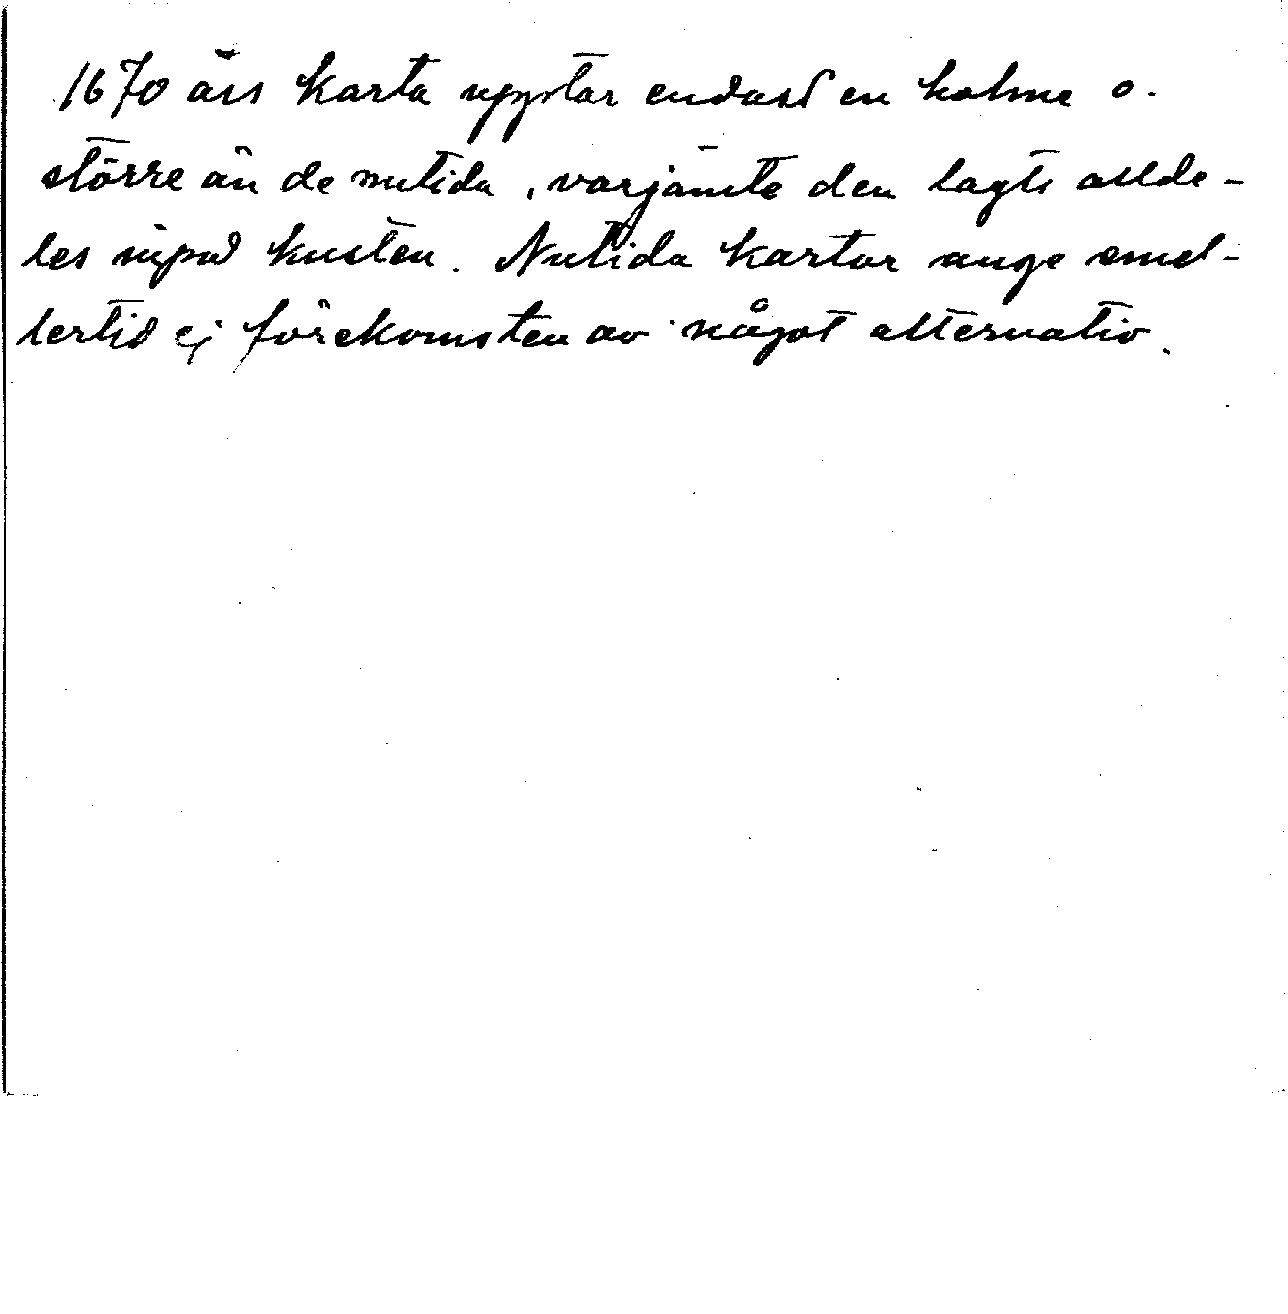 1670 års karta upptar endast en holme o.
större än de nutida, varjämte den lagts allde-
les inpå kusten. Nutida kartor ange emel-
lertid ej förekomsten av något alternativ.